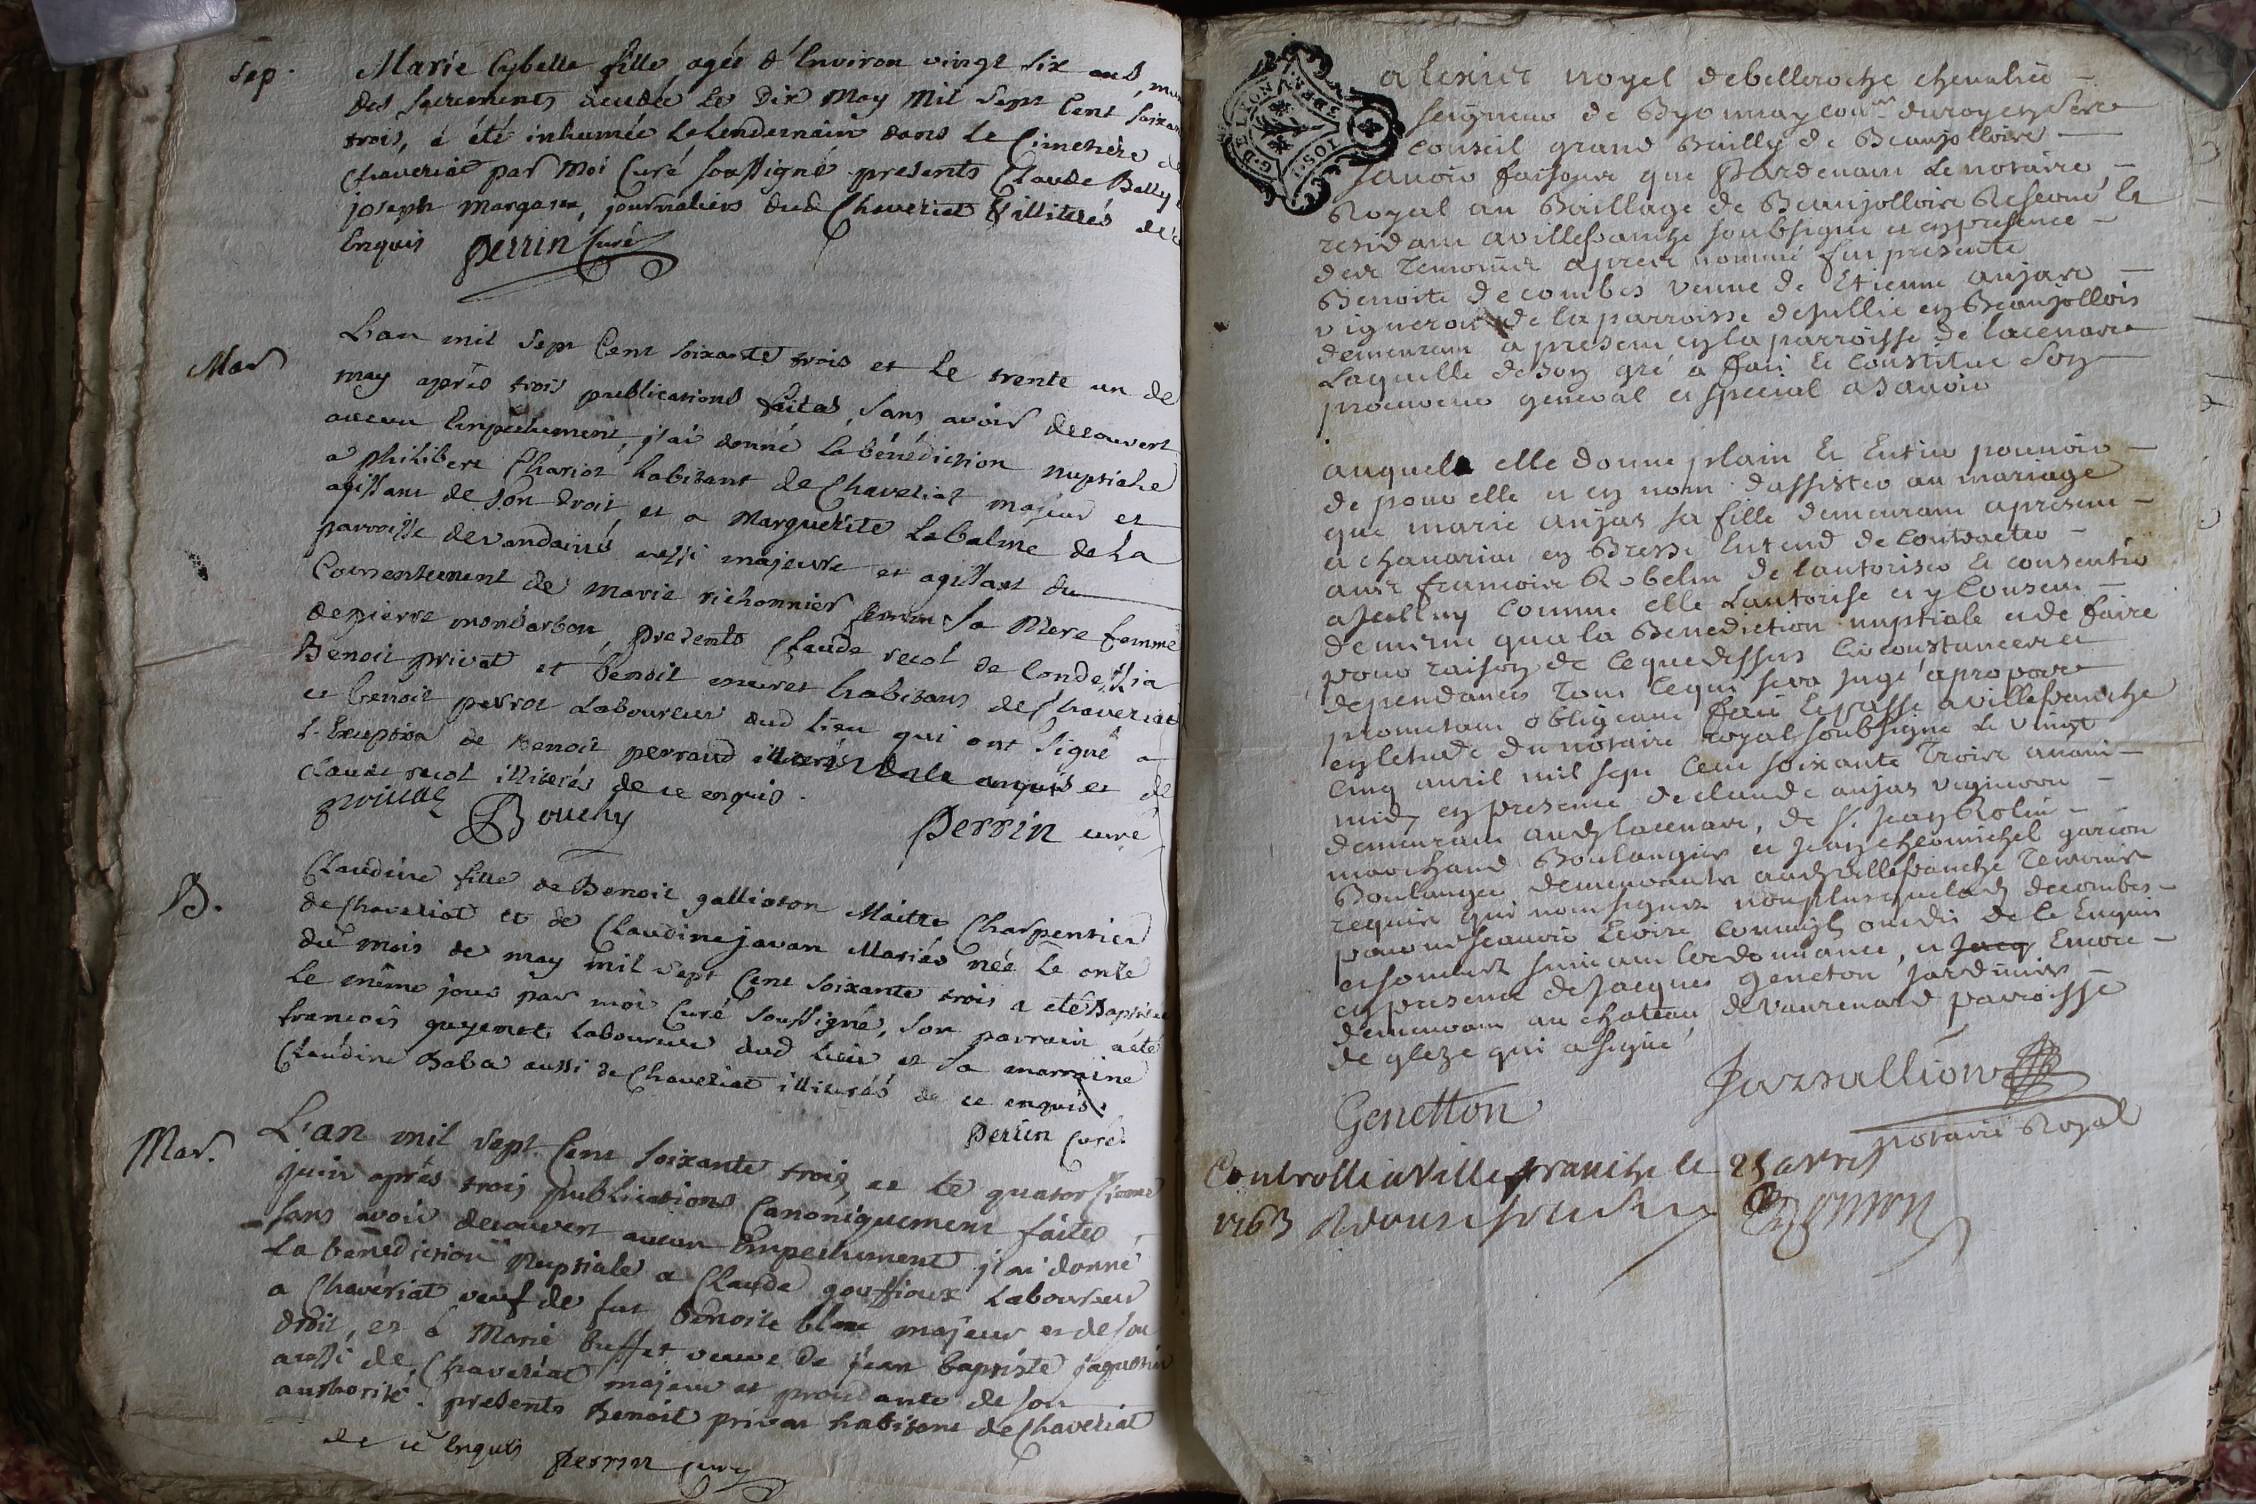 Sep.
Marie Cybelle fille agée d'Environ vingt six ans, mu
des sacrements decedée le Dix May Mil Sept Cent Soixan
trois, a été inhumée Le lendemain dans Le Cimetière de
Chaveriat par Moi Curé soussigné presents Claude Balley
joseph margaron, journaliers dud Chaveriat illiterés de c
Enquis Perrin Curé
Mar
L'an mil sept Cent soixante trois et le trente un de
may après trois publications faites, sans avoir decouvert
aucun Empechement, j'ai donné la bénédiction nuptiale
a philibert Chariot habitant de Chaveriat majeur et
agissant de son droit, et a Marguerite Labalme de La
parroisse de vandeins aussi majeure et agissant du
Consentement de Marie richonnier sa Mere femme
de pierre monbarbon, presents Claude recol de Condessia
Benoit privat et benoit habitans de Chaveriat
et benoit perrot Laboureur dud lieu qui ont signé a
L'Exeption de Benoit perraud illiterés de ce enquis et de
Claude recol illiterés de ce enquis.
Bouchy
Perrin curé
B.
Claudine fille de Benoit gallioton Maitre Charpentier
de Chaveriat et de Claudine javan Mariés née le onze
du mois de may mil sept Cent soixante trois a eté Baptisée
le même jour par moi Curé soussigné, son parrain a été
francois guyenet laboureur dud lieu et sa marraine
Claudine Baba aussi de Chaveriat illiterés de ce enquis.
perrin curé
Mar.
L'an mil sept Cent soixante trois et le quatorsieme
juin après trois publications Canoniquement faites
sans avoir decouvert aucun Empechement j'ai donné
La bénédiction Nuptiale a Claude gouffioux Laboureur
a Chavériat veuf de fut Benoite blanc majeur et de son
droit, et á Marie buffet veuve de jean baptiste jaquetin
aussi de Chaveriat majeure et procedante de son
authorité. presents Benoit privat habitant de Chaveriat
de ce Enquis perrin curé
G. DE LYON
alexis noyel debelleroche chevalier
seigneur de Byonnay con.er du roy en sere
conseil grand Bailly de Beaujollois
savoir faisons que pardevant le notaire
Royal au Baillage de Beaujollois Reservé le
residant a villefranche soubsigné et en presence
des temoins apres nommés fut presente
Benoite decombes veuve de Etienne aujas
vigneron de la parroisse de jullié en Beaujollois
demeurant a present en la parroisse de lacenas
Laquelle de son gré a fait et constitué son
procureur general et special a savoir
auquel elle donne plain et Entier pouvoir
de pour elle et en nom d'assister au mariage
que marie aujas sa fille demeurant a present
a chavariat en Bresse entend de contracter
avec francois Robelin de l'autoriser et consentir
a jcelluy comme elle l'autorise et y consent
de meme qua la Benediction nuptiale et de faire
pour raison de ce que dessus circonstances et
dependances tout ce qui sera jugé a propos
prometant obligeant fait et passé a villefranche
en letude du notaire royal soubsigné le vingt
cinq avril mil sept cent soixante trois avant
midy en presence de claude aujas vigneron
demeurant aud lacenas, de s.r jean Rolin
marchand Boulanger et jean cheomichel garcon
Boulanger demeurants aud villefranche temoins
requis qui nont signés non plus que lad decombes
pour ne scavoir Ecrire comm'ils ont dit de le Enquis
et sommés suivant lordonnance, et jacq Encore
en presence de jacques geneton jardinier
demeurant au chateau de vaurenard parroisse
de gleze qui a signé
Genetton
notaire Royal
Controllé a Villefranche le 25 avril
1763